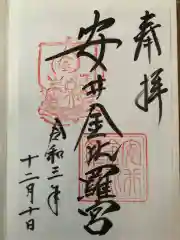 奉拝
安井金比羅宮
令和三年
十二月十日